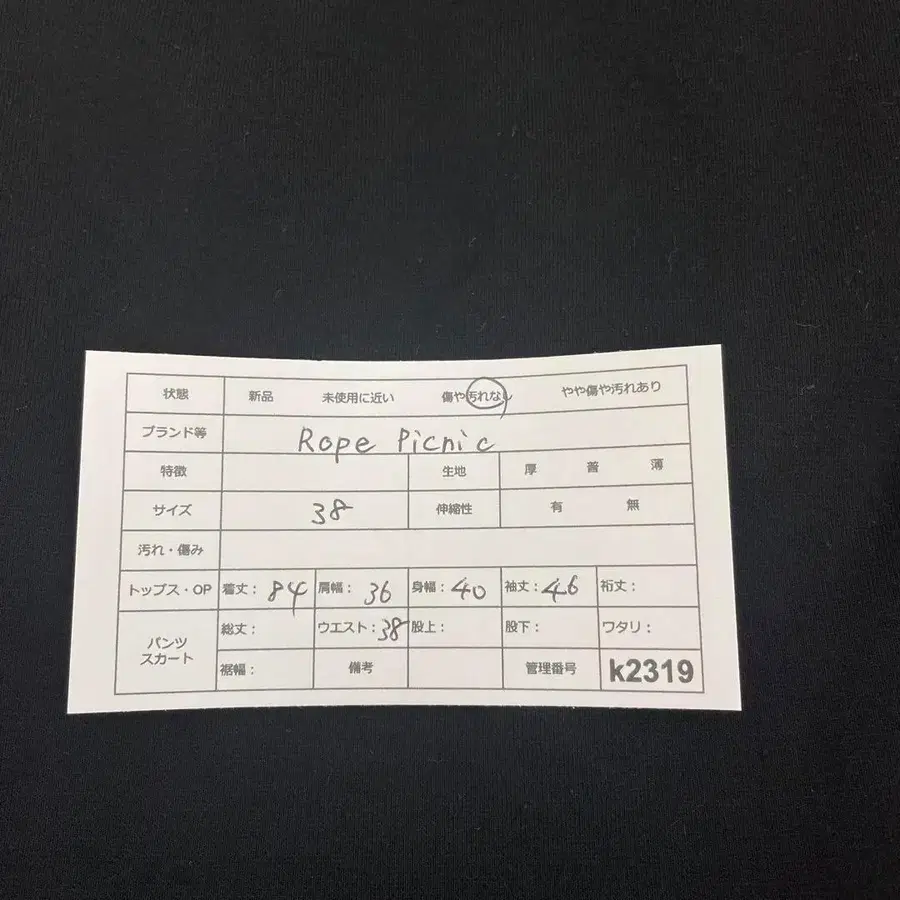 状態 新品 未使用に近い 傷や汚れなし やや傷や汚れあり
ブランド等 Rope Picnic
特徴 生地 厚 普 薄
サイズ 38 伸縮性 有 無
汚れ・傷み
トップス・OP 着丈: 84 肩幅: 36 身幅: 40 袖丈: 46 裄丈:
パンツ スカート 総丈: ウエスト: 38 股上: 股下: ワタリ:
裾幅: 備考 管理番号 k2319